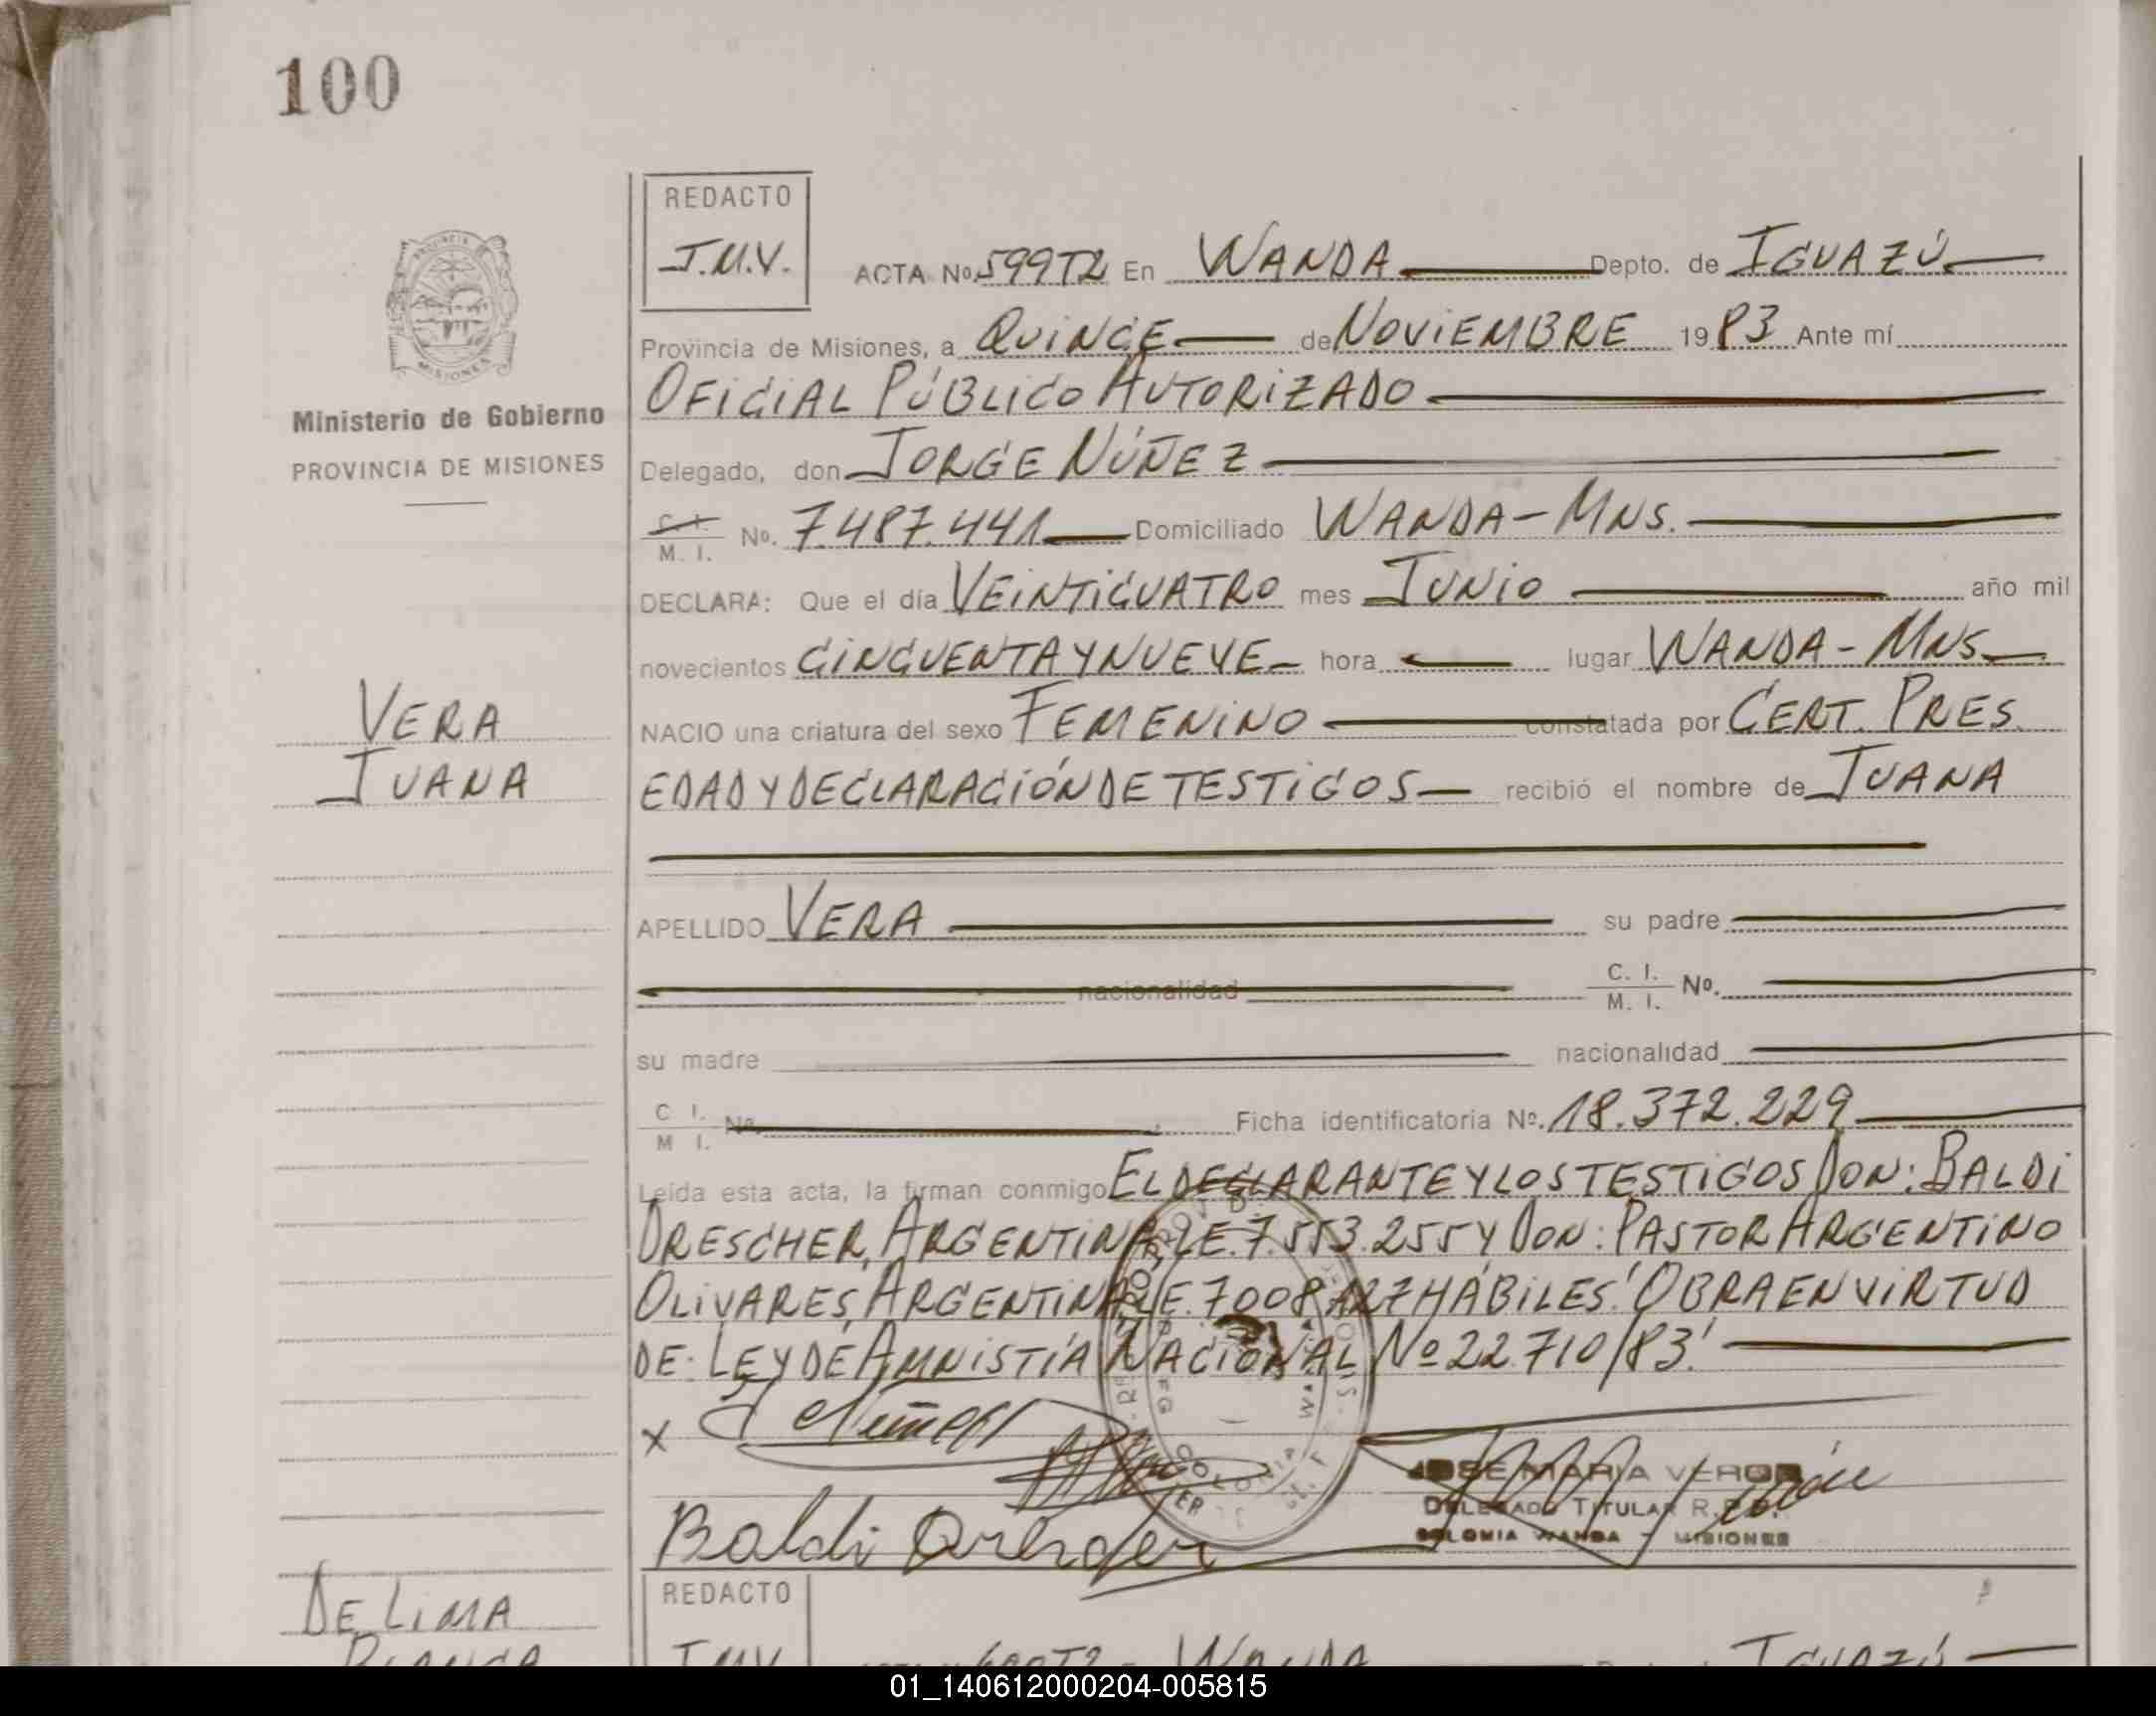 100
REDACTO
J.M.V.
ACTA No. 599T2 En WANDA Depto. de IGUAZÚ
Provincia de Misiones, a QUINCE de NOVIEMBRE 1983 Ante mí
OFICIAL PÚBLICO AUTORIZADO
PROVINCIA
MISIONES
Ministerio de Gobierno
PROVINCIA DE MISIONES
Delegado, don JORGE NÚÑEZ
C. I.
M. I.
No. 7.487.441 Domiciliado WANDA-MNS.
DECLARA: Que el día VEINTICUATRO mes JUNIO año mil
novecientos CINCUENTA Y NUEVE hora lugar WANDA-MNS
VERA
JUANA
NACIO una criatura del sexo FEMENINO constatada por CERT. PRES.
EDAD Y DECLARACIÓN DE TESTIGOS recibió el nombre de JUANA
APELLIDO VERA su padre
nacionalidad C. I.
M. I. No.
su madre nacionalidad
C I.
M I. No. Ficha identificatoria No. 18.372.229
Leída esta acta, la firman conmigo EL DECLARANTE Y LOS TESTIGOS DON: BALDI
DRESCHER, ARGENTINA, LE. 7.553.255 Y DON: PASTOR ARGENTINO
OLIVARES, ARGENTINA LE. 7008 HÁBILES. "OBRA EN VIRTUD
DE: LEY DE AMNISTÍA NACIONAL Nº 22.710/83."
x
JOSE MARIA VERON
DELEGADO TITULAR R.P.
COLONIA WANDA - MISIONES
Baldi Drescher
DE LIMA
BLANCA
REDACTO
J.M.V.
600T2 WANDA IGUAZÚ
01_140612000204-005815